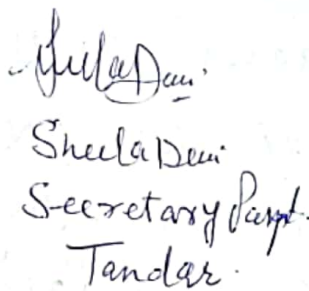 Sheela Devi
Sheela Devi
Secretary Panpt.
Tandar.